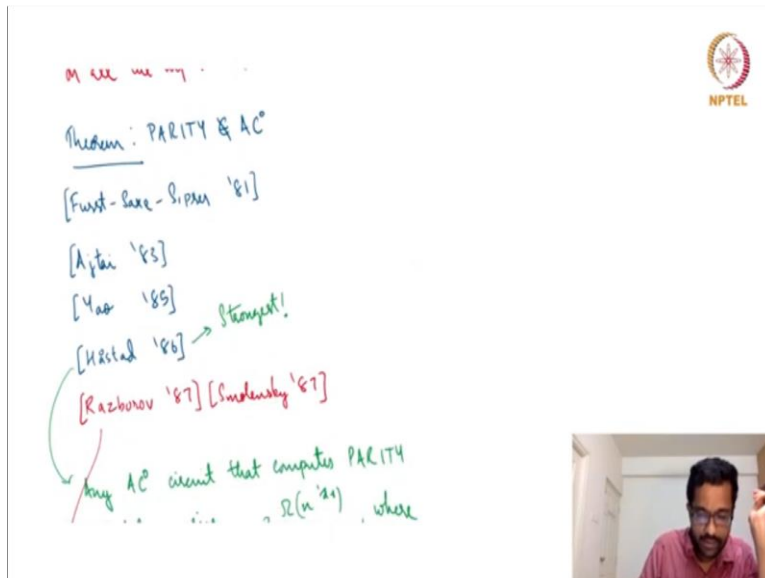 NPTEL
Theorem: PARITY ∉ AC⁰
[Furst-Saxe-Sipser '81]
[Ajtai '83]
[Yao '85]
[Håstad '86] → Strongest!
[Razborov '87] [Smolensky '87]
Any AC⁰ circuit that computes PARITY
where